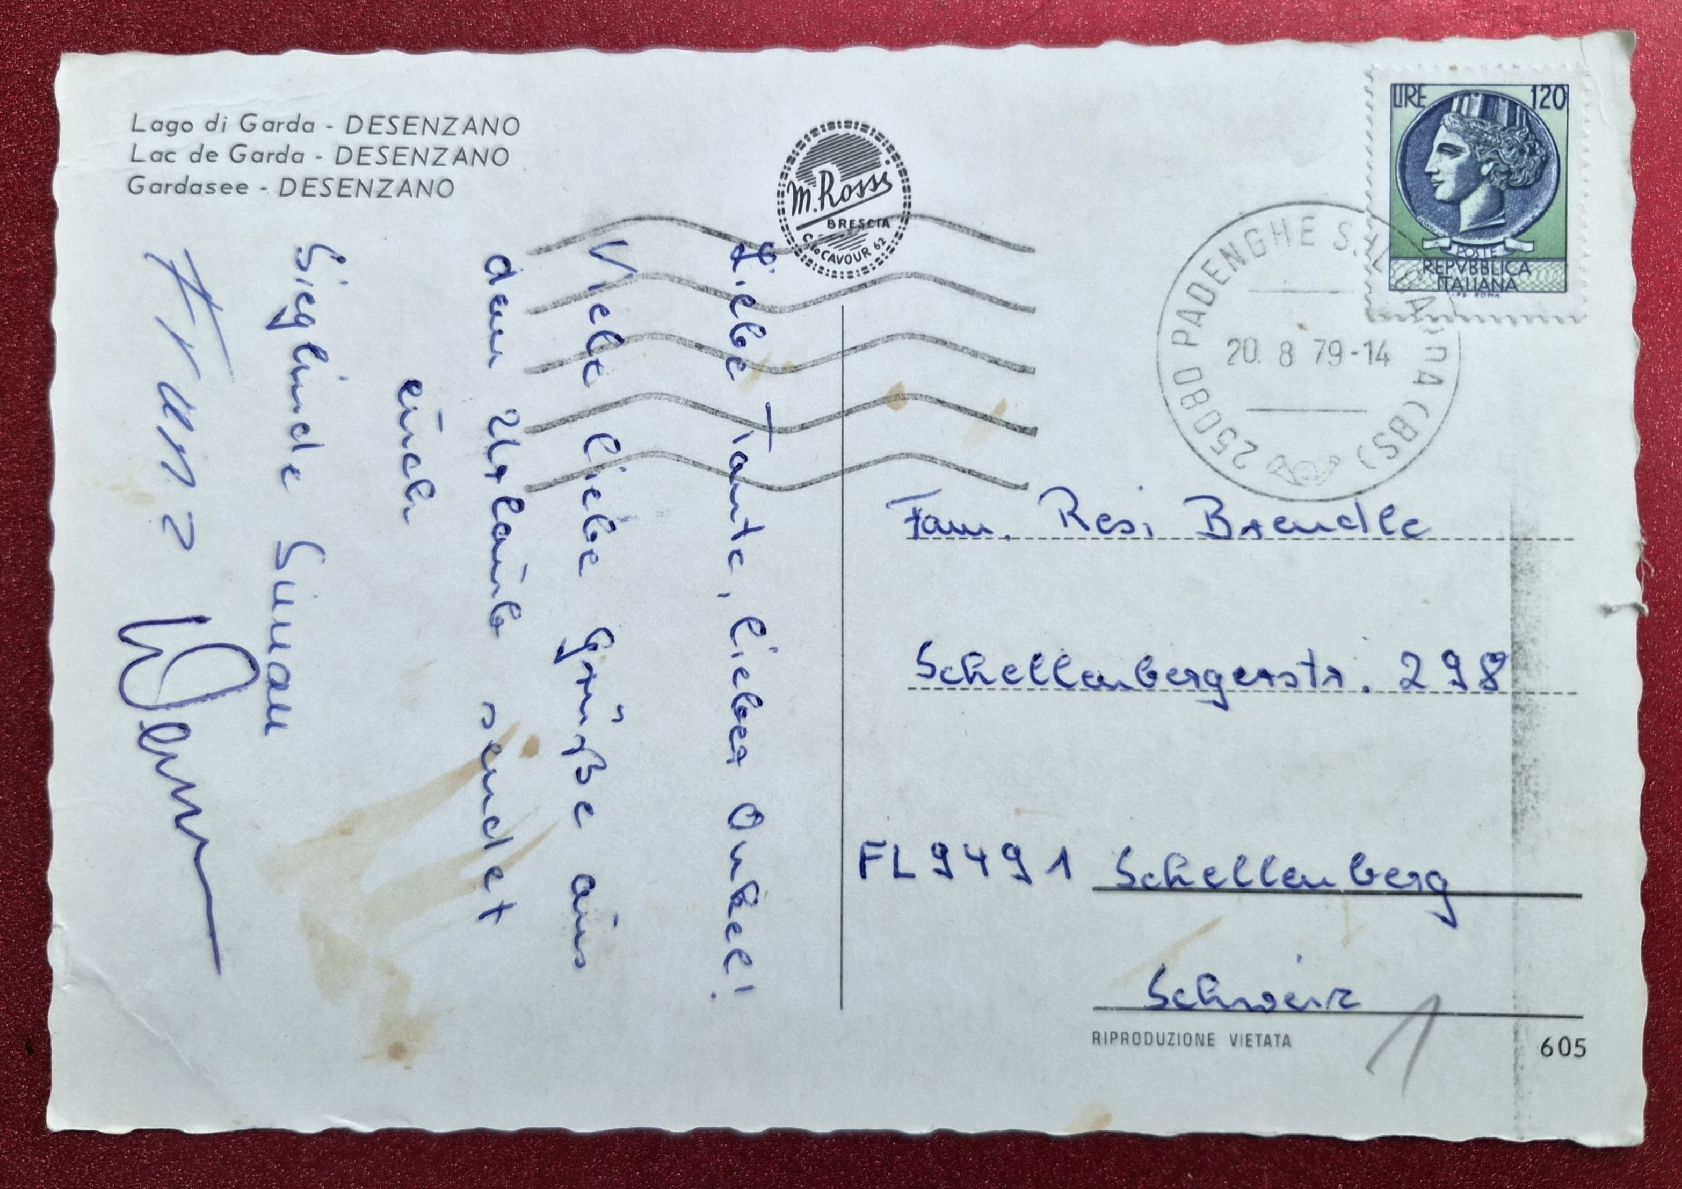 Lago di Garda - DESENZANO
Lac de Garda - DESENZANO
Gardasee - DESENZANO
M. Rossi
BRESCIA
C.so CAVOUR 62
LIRE 120
POSTE
REPVBBLICA
ITALIANA
I.P.S. ROMA
25080 PADENGHE SUL GARDA (BS)
20. 8 79-14
Liebe Tante, lieber Onkel!
Viele liebe Grüße aus
dem Urlaub sendet
euch
Sieglinde Simau
Franz
Fam. Resi Brendle
Schellenbergerstr. 298
FL 9491 Schellenberg
Schweiz
RIPRODUZIONE VIETATA
1
605